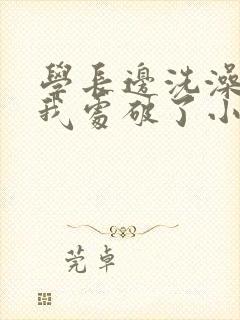 學長邊洗澡
我處破了小
莞卓